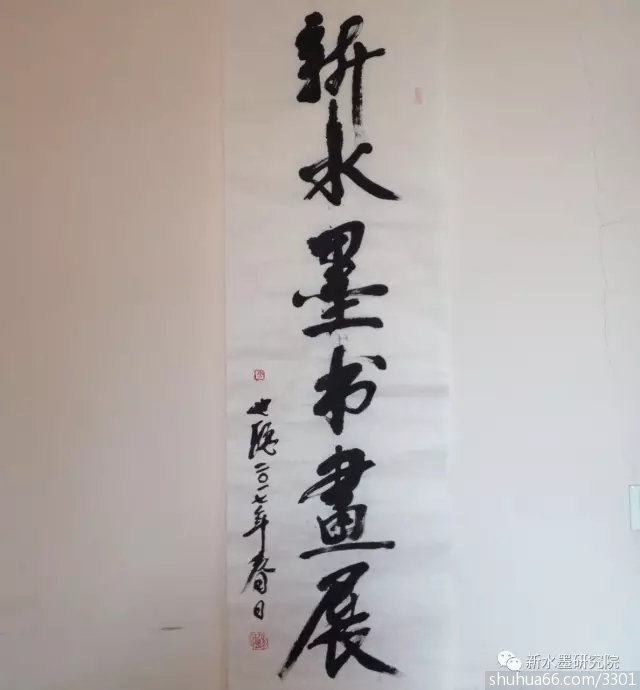 新水墨书畫展
二〇一七年春日
新水墨研究院
shuhua66.com/3301